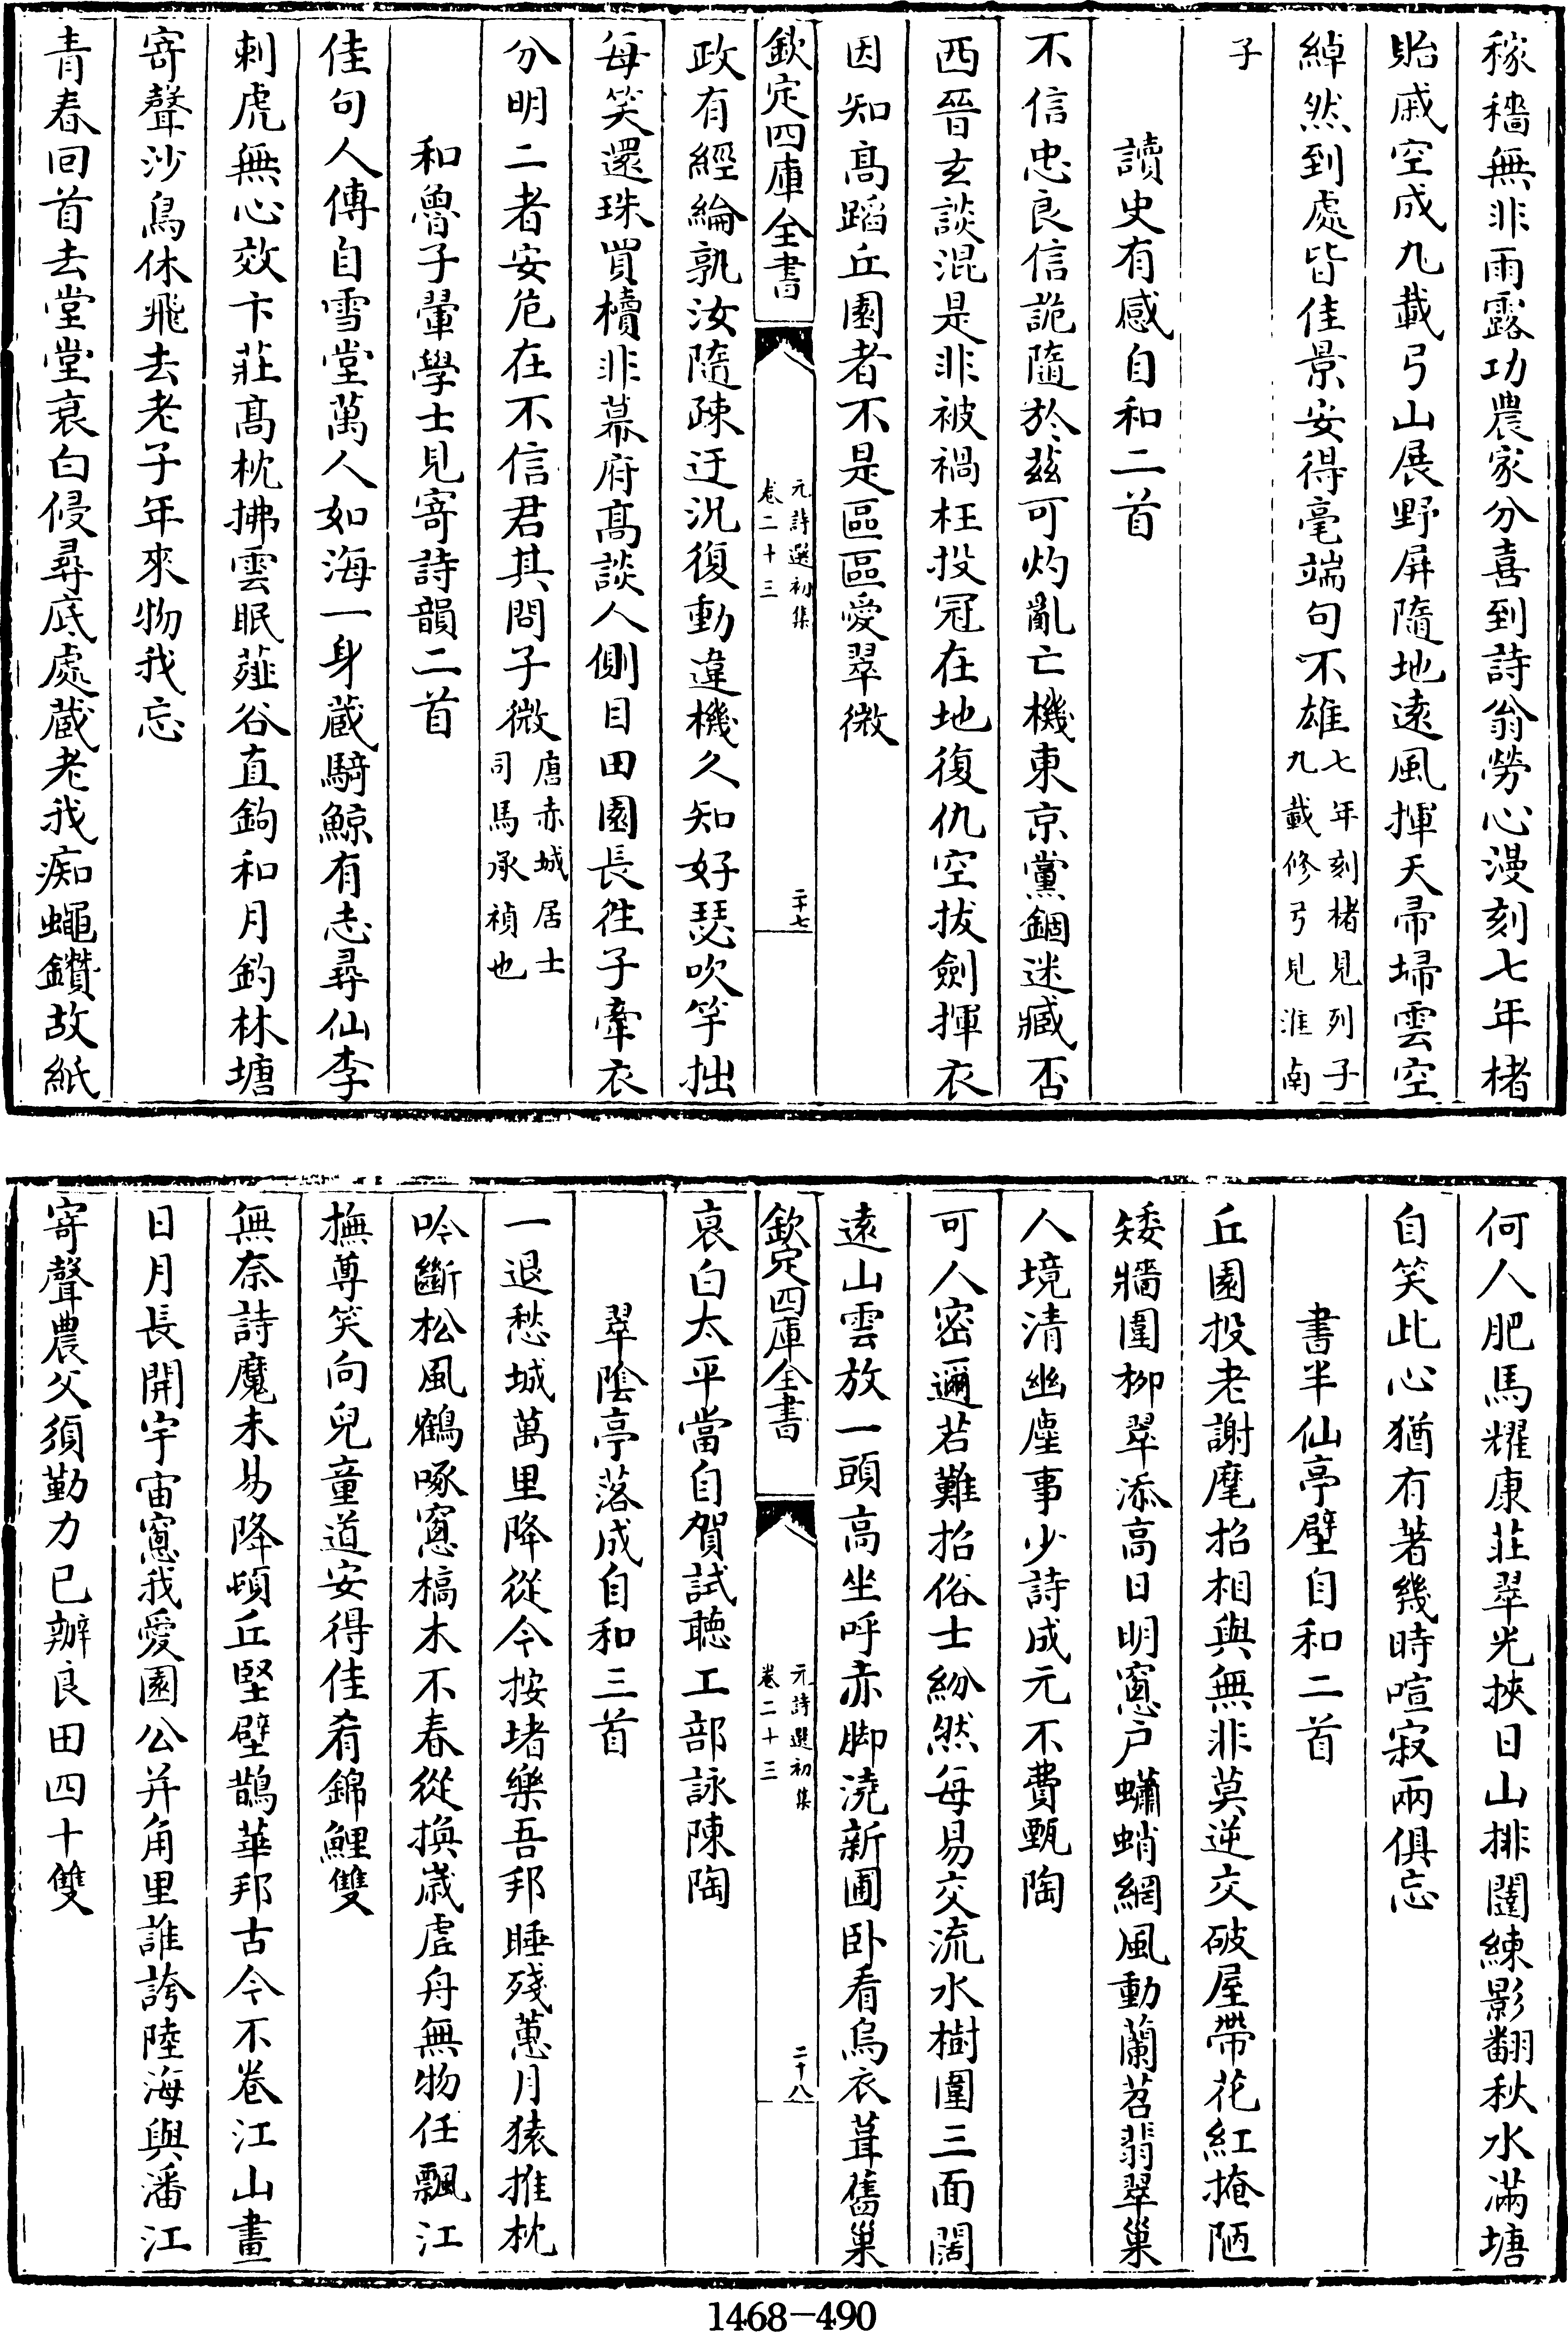 稼穡無非雨露功農家分喜到詩翁勞心漫刻七年楮
貽戚空成九載弓山展野屏隨地逺風揮天帚埽雲空
綽然到處皆佳景安得毫端句不雄七年刻楮見列子九載修弓見淮南
子
讀史有感自和二首
不信忠良信詭隨於兹可灼亂亡機東京黨錮迷臧否
西晉玄談混是非被禍枉投冠在地復仇空拔劍揮衣
因知髙蹈丘園者不是區區愛翠微
欽定四庫全書
元詩選初集
卷二十三
二十七
政有經綸孰汝隨疎迂況復動違機久知好瑟吹竽拙
每笑還珠買櫝非幕府髙談人側目田園長徃子牽衣
分明二者安危在不信君其問子微唐赤城居士司馬承禎也
和魯子翬學士見寄詩韻二首
佳句人傳自雪堂萬人如海一身藏騎鯨有志尋仙李
刺虎無心效卞莊髙枕拂雲眠薤谷直鉤和月釣林塘
寄聲沙鳥休飛去老子年來物我忘
青春回首去堂堂衰白侵尋底處藏老我痴蠅鑽故紙
何人肥馬耀康莊翠光挾日山排闥練影翻秋水滿塘
自笑此心猶有著幾時喧寂兩俱忘
書半仙亭壁自和二首
丘園投老謝麾招相與無非莫逆交破屋帶花紅掩陋
矮牆圍柳翠添高日明窻户蠨蛸網風動蘭苕翡翠巢
人境清幽塵事少詩成元不費甄陶
可人密邇若難招俗士紛然每易交流水樹圍三面闊
逺山雲放一頭高坐呼赤脚澆新圃卧看烏衣葺舊巢
欽定四庫全書
元詩選初集
卷二十三
二十八
哀白太平當自賀試聽工部詠陳陶
翠陰亭落成自和三首
一退愁城萬里降從今按堵樂吾邦睡殘蕙月猿推枕
吟斷松風鶴啄窻槁木不春從換嵗虛舟無物任飄江
撫尊笑向兒童道安得佳肴錦鯉雙
無奈詩魔未易降頓丘堅壁鵲華邦古今不卷江山畫
日月長開宇宙窻我愛園公并角里誰誇陸海與潘江
寄聲農父須勤力已辦良田四十雙
1468-490